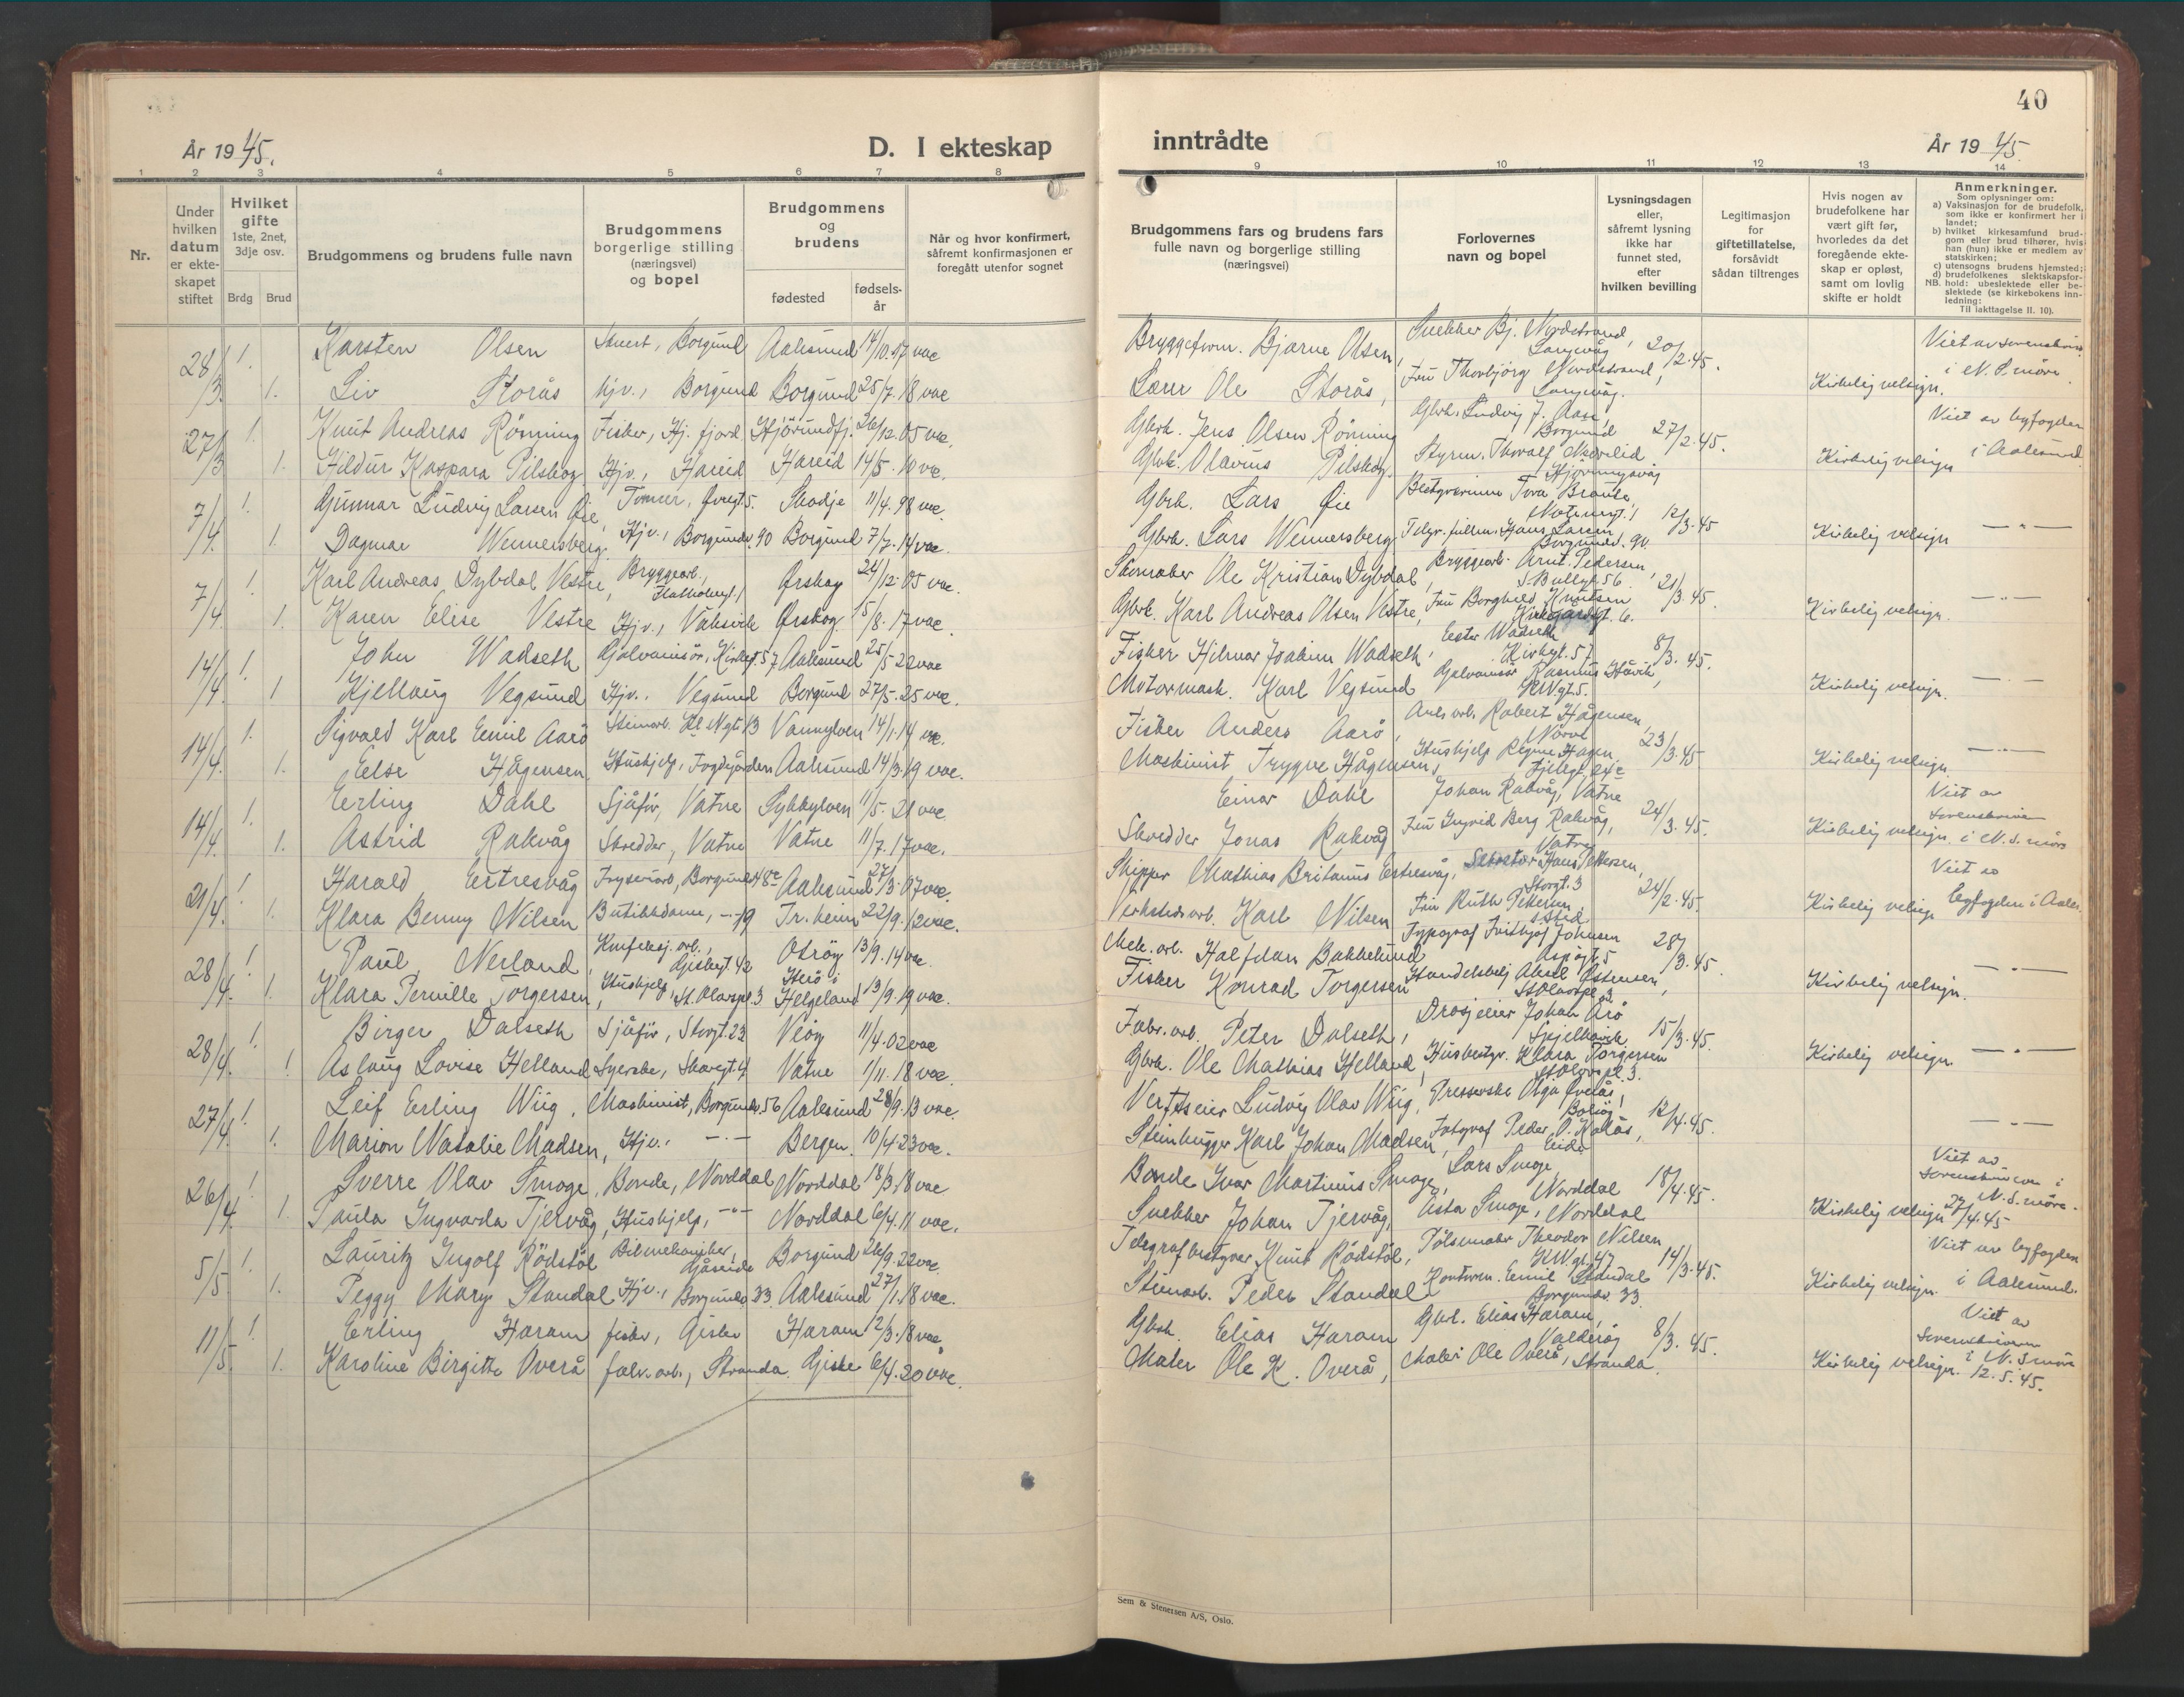 40
År 1945.
D. I ekteskap
inntrådte
År 1945.
1 2 3 4 5 6 7 8
9 10 11 12 13 14
Nr.
Under
hvilken
datum
er ekte-
skapet
stiftet
Hvilket
gifte
1ste, 2net,
3dje osv.
Brdg Brud
Brudgommens og brudens fulle navn
Brudgommens
borgerlige stilling
(næringsvei)
og bopel
Brudgommens
og
brudens
fødested
fødsels-
år
Når og hvor konfirmert,
såfremt konfirmasjonen er
foregått utenfor sognet
Brudgommens fars og brudens fars
fulle navn og borgerlige stilling
(næringsvei)
Forlovernes
navn og bopel
Lysningsdagen
eller,
såfremt lysning
ikke har
funnet sted,
efter
hvilken bevilling
Legitimasjon
for
giftetillatelse,
forsåvidt
sådan tiltrenges
Hvis nogen av
brudefolkene har
vært gift før,
hvorledes da det
foregående ekte-
skap er opløst,
samt om lovlig
skifte er holdt
Anmerkninger.
Som oplysninger om:
a) Vaksinasjon for de brudefolk,
som ikke er konfirmert her i
landet;
b) hvilket kirkesamfund brud-
gom eller brud tilhører, hvis
han (hun) ikke er medlem av
statskirken;
c) utensogns brudens hjemsted;
d) brudefolkenes slektskapsfor-
NB. hold: ubeslektede eller be-
slektede (se kirkebokens inn-
ledning:
Til iakttagelse II. 10).
28/3. 1. Karsten Olsen Stuert, Borgund Aalesund 14/10.17 vac Bryggeform. Bjarne Olsen, Snekker Bj. Nordstrand, Langevåg 20/2.45. Viet av sorenskriv.
1. Liv Storås Hjv., Borgund Borgund 25/7.18 vac Lærer Ole Storås, Fru Thorbjörg Nordstrand, Langevåg. Kirkelig velsign. i N. S.møre
27/3 1. Knut Andreas Rönning Fisker, Hj.fjord Hjörundfj. 26/12.05 vac. Gbrk. Jens Olsen Rönning Gbrk. Ludvig J. Aase, Borgund 27/2.45. Viet av byfogden
1. Hildur Kaspara Pilskog Hjv., Hareid Hareid 14/5.10 vac. Gbrk. Olavus Pilskog. Styrm. Thoralf Kirkelig velsign i Aalesund.
7/4. 1. Gunnar Ludvig Larsen Øie, Tømrer, Øvregt 5. Skodje 11/4.98 vac. Gbrk. Lars Øie Bestyrerinne Tora Notenesgt. 1 12/3.45
1. Dagmar Wennersberg. Hjv., Borgundv. 90 Borgund 7/7.14 vac. Gbrk. Lars Wennersberg Telgr.fullm. Hans Larsen Borgundv. 90. Kirkelig velsign — " —
7/4. 1. Karl Andreas Dybdal Vestre, Bryggearb., Ørskog 24/12.05 vac. Skomaker Ole Kristian Dybdal, Bryggearb. Arnt Pedersen, 21/3.45.
1. Karen Elise Vestre Hjv., Vaksvik Ørskog 15/8.17 vac. Gbrk. Karl Andreas Olsen Vestre, Fru Borghild Knutsen Kirkegårdsgt. 6. Kirkelig velsign. — " —
14/4 1. John Wadseth Galvanisör, Kirkegt. 57 Aalesund 25/5.22 vac Fisker Hilmar Joakim Wadseth, Ester Wadseth Kirkegt. 57 8/3.45.
1 Kjellaug Vegsund Hjv., Vegsund Borgund 27/5.25 vac. Motormask. Karl Vegsund Galvanisör Rasmus Håvik, Kirkelig velsign. — " —
14/4. 1. Sigvald Karl Emil Aarö Steinarb. Vannylven 14/1.14 vac. Fisker Anders Aarö, Robert Hågensen, Nörve 23/3.45
1. Else Hågensen Hushjelp, Fogdegården Aalesund 14/3.19 vac. Maskinist Trygve Hågensen, Hushjelp Regine Hagen, Kirkelig velsign — " —
14/4. 1. Erling Dahl Sjåfør, Vatne Sykkylven 11/5.21 vac. Einar Dahl Johan Rakvåg, Vatne 24/3.45. Viet av sorenskriver
1. Astrid Rakvåg Skredder, Vatne Vatne 11/7.17 vac. Skredder Jonas Rakvåg Fru Ingrid Berg Rakvåg, Vatne Kirkelig velsign. i N. S.møre
21/4. 1. Harald Eertresvåg Aalesund 27/3.07 vac. Skipper Mathias Britanus Ertresvåg, Hans Pettersen, Storgt. 3 24/2.45. Viet av
1. Klara Benny Nilsen Butikkdame, Tr.heim 22/9.12 vac. Verkstedarb. Karl Nilsen Fru Ruth Pettersen, s.sted Kirkelig velsign byfogden i Aales.
28/4. 1. Paul Nerland, Konfeksj.arb., Giskegt. 42 Otröy 13/9.14 vac. Mek.arb. Halfdan Bakkelund Typograf Fridtjof Johnsen Aspøgt 5 28/3.45.
1. Klara Pernille Torgersen, Hushjelp, St. Olavspl. 3 Herö i Helgeland 13/9.19 vac. Fisker Konrad Torgersen Handelsbetj. Østensen, St. Olavspl. 3 Kirkelig velsign. — " —
28/4. 1. Birger Dalseth Sjåför, Storgt. 23 Veöy 11/4.02 vac Fabr.arb. Peter Dalseth, Drosjeeier Johan Arö Spjelkavik 15/3.45.
1 Aslaug Lovise Helland Syerske, Skaregt. 4 Vatne 1/11.18 vac. Gbrk. Ole Mathias Helland, Husbestyr. Klara Torgersen St. Olavspl. 3. Kirkelig velsign. — " —
27/4. 1 Leif Erling Wiig, Maskinist, Borgundv. 56 Aalesund 28/9.13 vac. Verftseier Ludvig Olav Wiig, Presserske Olga Øverås, 12/4.45.
1. Marion Natalie Madsen, Hjv., — " — Bergen 10/4.23 vac. Steinhugger Karl Johan Madsen, Fotograf Peder O. Kalås, Eide — " —
26/4 1 Sverre Olav Smoge, Bonde, Norddal Norddal 18/3.18 vac Bonde Ivar Martinus Smoge, Lars Smoge, Norddal 18/4.45. Viet av sorenskriveren i
1. Paula Ingvarda Tjervåg, Hushjelp, — " — Norddal 6/4.11 vac. Snekker Johan Tjervåg, Asta Smoge, Norddal Kirkelig velsign 27/4.45 N. S.møre.
5/5 1. Lauritz Ingolf Rödstöl Bilmekaniker, Gåseide Borgund 26/9.22 vac. Telegrafbestyrer Knut Rödstöl, Pølsemaker Theodor Nilsen 14/3.45. Viet av byfogden
1. Peggy Mary Standal Hjv., Borgundv. 33. Aalesund 27/1.18 vac. Stuearb. Peder Standal Kontorm. Emil Standal Borgundv. 33. Kirkelig velsign. i Aalesund.
11/5. 1 Erling Haram fisker, Giske Haram 12/3.18 vac. Gbrk. Elias Haram Gbrk. Elias Haram, Valderøy 8/3.45. Viet av sorenskriveren
1. Karoline Birgitte Overå falv.arb., Stranda Giske 6/4.20 vac. Maler Ole K. Overå, Maler Ole Overå, Stranda. Kirkelig velsign. i N. S.møre 12.5.45.
Sem & Stenersen A/S, Oslo.